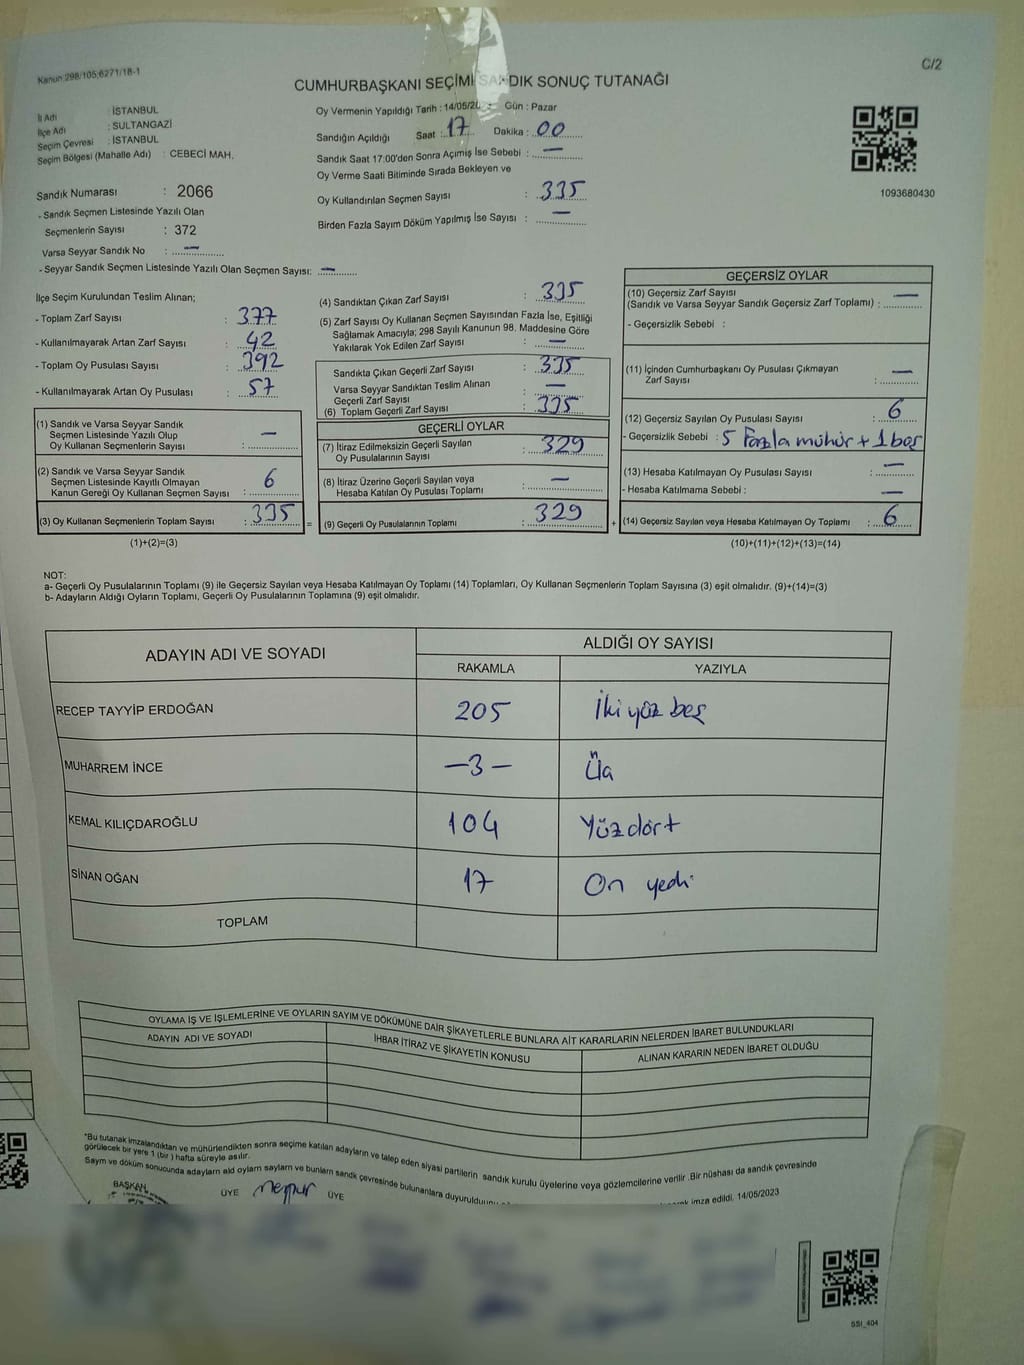 Kanun:298/105;6271/18-1
C/2
CUMHURBAŞKANI SEÇİMİ SANDIK SONUÇ TUTANAĞI
İl Adı : İSTANBUL
İlçe Adı : SULTANGAZİ
Seçim Çevresi : İSTANBUL
Seçim Bölgesi (Mahalle Adı) : CEBECİ MAH.
Sandık Numarası : 2066
- Sandık Seçmen Listesinde Yazılı Olan
Seçmenlerin Sayısı : 372
Varsa Seyyar Sandık No : —
- Seyyar Sandık Seçmen Listesinde Yazılı Olan Seçmen Sayısı: —
Oy Vermenin Yapıldığı Tarih : 14/05/20 Gün : Pazar
Sandığın Açıldığı Saat : 17 Dakika : 00
Sandık Saat 17:00'den Sonra Açımış İse Sebebi : —
Oy Verme Saati Bitiminde Sırada Bekleyen ve
Oy Kullandırılan Seçmen Sayısı : 335
Birden Fazla Sayım Döküm Yapılmış İse Sayısı : —
1093680430
İlçe Seçim Kurulundan Teslim Alınan;
- Toplam Zarf Sayısı : 377
- Kullanılmayarak Artan Zarf Sayısı : 42
- Toplam Oy Pusulası Sayısı : 392
- Kullanılmayarak Artan Oy Pusulası : 57
(1) Sandık ve Varsa Seyyar Sandık
Seçmen Listesinde Yazılı Olup
Oy Kullanan Seçmenlerin Sayısı : —
(2) Sandık ve Varsa Seyyar Sandık
Seçmen Listesinde Kayıtlı Olmayan
Kanun Gereği Oy Kullanan Seçmen Sayısı : 6
(3) Oy Kullanan Seçmenlerin Toplam Sayısı : 335 =
(1)+(2)=(3)
(4) Sandıktan Çıkan Zarf Sayısı : 335
(5) Zarf Sayısı Oy Kullanan Seçmen Sayısından Fazla İse, Eşitliği
Sağlamak Amacıyla; 298 Sayılı Kanunun 98. Maddesine Göre
Yakılarak Yok Edilen Zarf Sayısı : —
Sandıkta Çıkan Geçerli Zarf Sayısı : 335
Varsa Seyyar Sandıktan Teslim Alınan
Geçerli Zarf Sayısı : —
(6) Toplam Geçerli Zarf Sayısı : 335
GEÇERLİ OYLAR
(7) İtiraz Edilmeksizin Geçerli Sayılan
Oy Pusulalarının Sayısı : 329
(8) İtiraz Üzerine Geçerli Sayılan veya
Hesaba Katılan Oy Pusulası Toplamı : —
(9) Geçerli Oy Pusulalarının Toplamı : 329 +
GEÇERSİZ OYLAR
(10) Geçersiz Zarf Sayısı
(Sandık ve Varsa Seyyar Sandık Geçersiz Zarf Toplamı) : —
- Geçersizlik Sebebi :
(11) İçinden Cumhurbaşkanı Oy Pusulası Çıkmayan
Zarf Sayısı : —
(12) Geçersiz Sayılan Oy Pusulası Sayısı : 6
- Geçersizlik Sebebi : 5 Fazla mühür + 1 boş
(13) Hesaba Katılmayan Oy Pusulası Sayısı : —
- Hesaba Katılmama Sebebi : —
(14) Geçersiz Sayılan veya Hesaba Katılmayan Oy Toplamı : 6
(10)+(11)+(12)+(13)=(14)
NOT:
a- Geçerli Oy Pusulalarının Toplamı (9) ile Geçersiz Sayılan veya Hesaba Katılmayan Oy Toplamı (14) Toplamları, Oy Kullanan Seçmenlerin Toplam Sayısına (3) eşit olmalıdır. (9)+(14)=(3)
b- Adayların Aldığı Oyların Toplamı, Geçerli Oy Pusulalarının Toplamına (9) eşit olmalıdır.
ADAYIN ADI VE SOYADI ALDIĞI OY SAYISI
RAKAMLA YAZIYLA
RECEP TAYYİP ERDOĞAN 205 İkiyüz beş
MUHARREM İNCE —3— Üç
KEMAL KILIÇDAROĞLU 104 Yüzdört
SİNAN OĞAN 17 On yedi
TOPLAM
OYLAMA İŞ VE İŞLEMLERİNE VE OYLARIN SAYIM VE DÖKÜMÜNE DAİR ŞİKAYETLERLE BUNLARA AİT KARARLARIN NELERDEN İBARET BULUNDUKLARI
ADAYIN ADI VE SOYADI İHBAR İTİRAZ VE ŞİKAYETİN KONUSU ALINAN KARARIN NEDEN İBARET OLDUĞU
*Bu tutanak imzalandıktan ve mühürlendikten sonra seçime katılan adayların ve talep eden siyasi partilerin sandık kurulu üyelerine veya gözlemcilerine verilir .Bir nüshası da sandık çevresinde
görülecek bir yere 1 (bir ) hafta süreyle asılır.
Sayım ve döküm sonucunda adayların ald oyların sayıları ve bunların sandık çevresinde bulunanlara duyurulduğu imza edildi. 14/05/2023
BAŞKAN ÜYE ÜYE
SSI_404